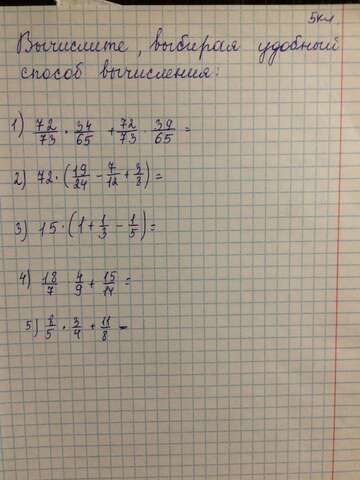 5кл.
Вычислите, выбирая удобный
способ вычисления:
1) 72/73 · 34/65 + 72/73 · 39/65 =
2) 72 · (19/24 - 7/12 + 3/8) =
3) 15 · (1 + 1/3 - 1/5) =
4) 18/7 · 4/9 + 15/14 =
5) /5 · 3/4 + 11/8 -